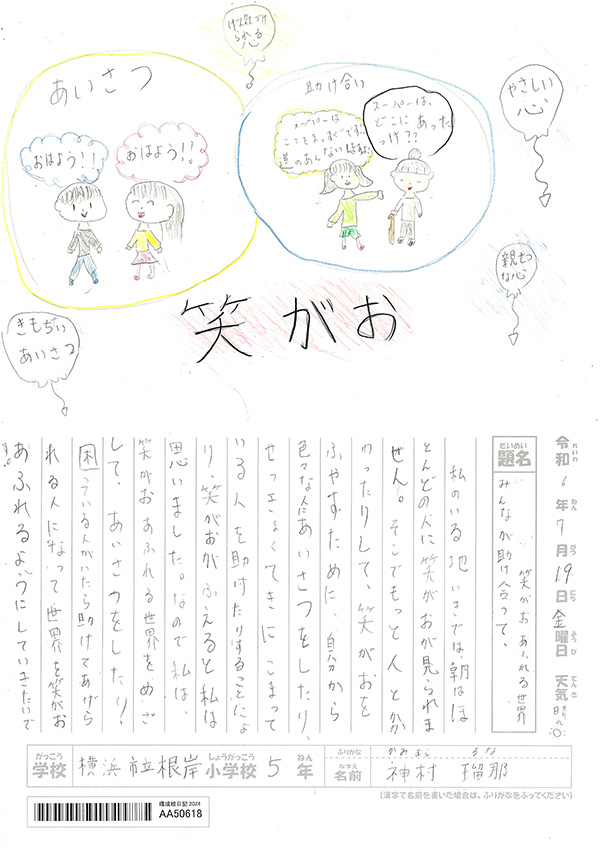 げん気づけ
られる
心
やさしい
心
あいさつ
助け合い
おはよう!!
おはよう!!
スーパーは
ここをまっすぐです。
道のあんないはまかせて
スーパーは、
どこに あった
っけ??
親せつ
な心
きもちいい
あいさつ
笑がお
令和6年7月19日金曜日 天気 晴れ
れいわ ねん がつ にち ようび てんき
だいめい
題名
みんなが助け合って、
笑がおあふれる世界
私のいる地いきでは、朝はほ
とんどの人に笑がおが見られま
せん。そこでもっと人とか
わったりして、笑がおを
ふやすために、自分から
色々な人にあいさつをしたり、
せっきょくてきにこまって
いる人を助けたりすることによ
り、笑がおがふえると私は
思いました。なので私は、
笑がおあふれる世界をめざ
して、あいさつをしたり、
困っている人がいたら助けてあげら
れる人になって世界を笑がお
あふれるようにしていきたいで
す。
がっこう しょうがっこう ねん
学校 横浜市立根岸小学校 5年
ふりがな かみむら るな
なまえ
名前 神村 瑠那
(漢字で名前を書いた場合は、ふりがなをふってください)
環境絵日記 2024
AA50618